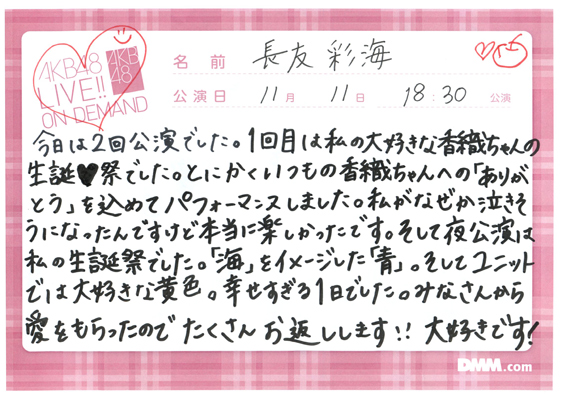 AKB48
LIVE!!
ON DEMAND
AKB
48
名前 長友 彩海
公演日 11月 11日 18:30 公演
今日は2回公演でした。1回目は私の大好きな香織ちゃんの
生誕♥祭でした。とにかくいつもの香織ちゃんへの「ありが
とう」を込めてパフォーマンスしました。私がなぜか泣きそ
うになったんですけど本当に楽しかったです。そして夜公演は
私の生誕祭でした。「海」をイメージした「青」。そしてユニット
では大好きな黄色。幸せすぎる1日でした。みなさんから
愛をもらったので たくさん お返しします!! 大好きです!
DMM.com